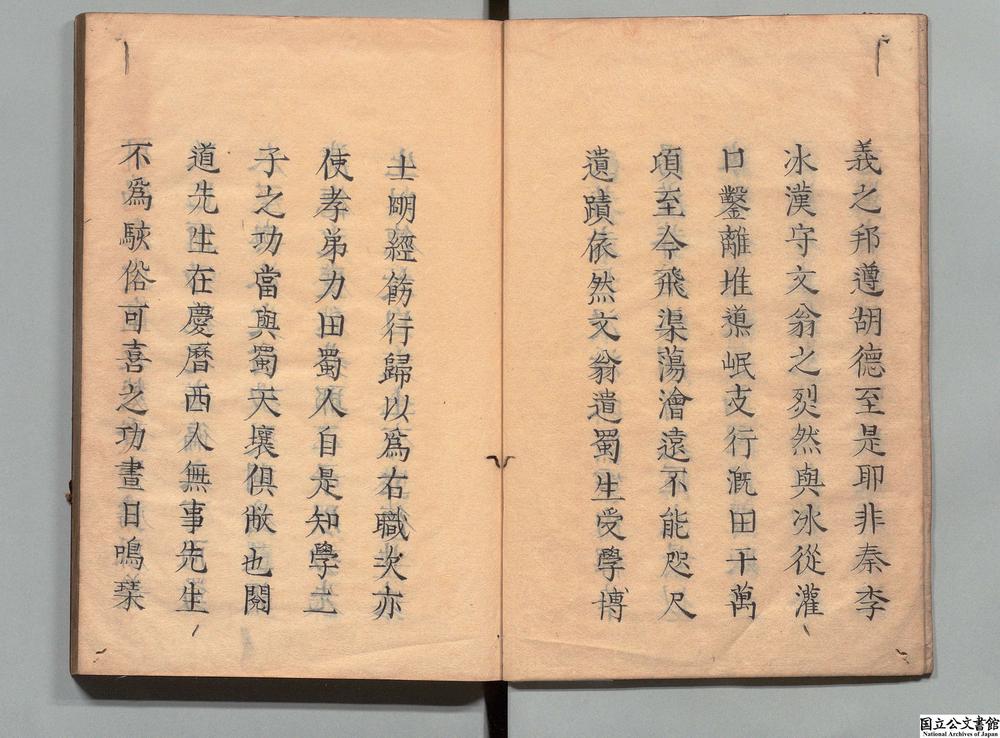 義之邦遵胡德至是耶非秦李
冰漢守文翁之烈然與冰從灌
口鑿離堆遵岷支行溉田十萬
項至今飛渠蕩澮遠不能咫尺
遺蹟依然文翁遣蜀生受學博
士明經飭行歸以為右職次亦
使孝弟力田蜀人自是知學二
子之功當與蜀天壤俱敝也閟
道先生在慶曆西人無事先生
不為駭俗可喜之功晝日鳴琹
国立公文書館
National Archives of Japan